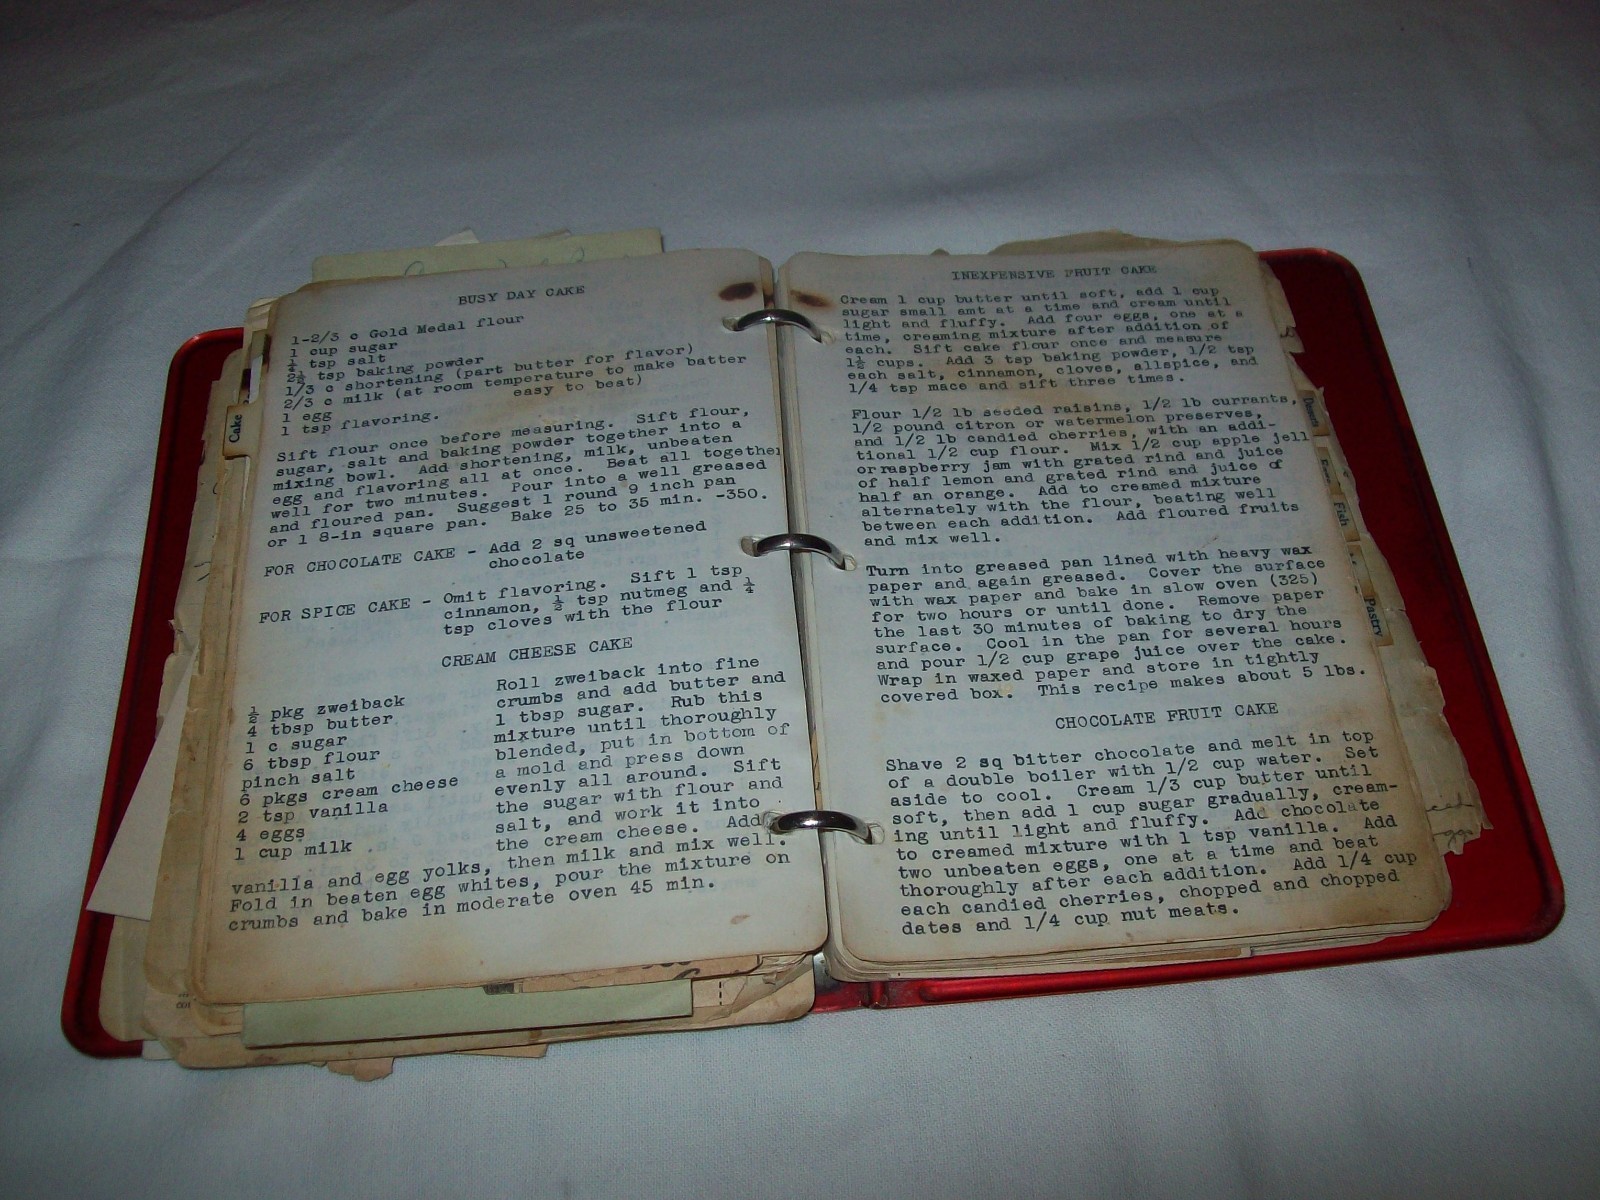 BUSY DAY CAKE
1-2/3 c Gold Medal flour
1 cup sugar
½ tsp salt
2½ tsp baking powder
1/3 c shortening (part butter for flavor)
2/3 c milk (at room temperature to make batter
easy to beat)
1 egg
1 tsp flavoring.
Sift flour once before measuring. Sift flour,
sugar, salt and baking powder together into a
mixing bowl. Add shortening, milk, unbeaten
egg and flavoring all at once. Beat all together
well for two minutes. Pour into a well greased
and floured pan. Suggest 1 round 9 inch pan
or 1 8-in square pan. Bake 25 to 35 min. -350.
FOR CHOCOLATE CAKE - Add 2 sq unsweetened
chocolate
FOR SPICE CAKE - Omit flavoring. Sift 1 tsp
cinnamon, ½ tsp nutmeg and ¼
tsp cloves with the flour
CREAM CHEESE CAKE
½ pkg zweiback
4 tbsp butter
1 c sugar
6 tbsp flour
pinch salt
6 pkgs cream cheese
2 tsp vanilla
4 eggs
1 cup milk
Roll zweiback into fine
crumbs and add butter and
1 tbsp sugar. Rub this
mixture until thoroughly
blended, put in bottom of
a mold and press down
evenly all around. Sift
the sugar with flour and
salt, and work it into
the cream cheese. Add
vanilla and egg yolks, then milk and mix well.
Fold in beaten egg whites, pour the mixture on
crumbs and bake in moderate oven 45 min.
Cake
INEXPENSIVE FRUIT CAKE
Cream 1 cup butter until soft, add 1 cup
sugar small amt at a time and cream until
light and fluffy. Add four eggs, one at a
time, creaming mixture after addition of
each. Sift cake flour once and measure
1½ cups. Add 3 tsp baking powder, 1/2 tsp
each salt, cinnamon, cloves, allspice, and
1/4 tsp mace and sift three times.
Flour 1/2 lb seeded raisins, 1/2 lb currants,
1/2 pound citron or watermelon preserves,
and 1/2 lb candied cherries, with an addi-
tional 1/2 cup flour. Mix 1/2 cup apple jell
or raspberry jam with grated rind and juice
of half lemon and grated rind and juice of
half an orange. Add to creamed mixture
alternately with the flour, beating well
between each addition. Add floured fruits
and mix well.
Turn into greased pan lined with heavy wax
paper and again greased. Cover the surface
with wax paper and bake in slow oven (325)
for two hours or until done. Remove paper
the last 30 minutes of baking to dry the
surface. Cool in the pan for several hours
and pour 1/2 cup grape juice over the cake.
Wrap in waxed paper and store in tightly
covered box. This recipe makes about 5 lbs.
CHOCOLATE FRUIT CAKE
Shave 2 sq bitter chocolate and melt in top
of a double boiler with 1/2 cup water. Set
aside to cool. Cream 1/3 cup butter until
soft, then add 1 cup sugar gradually, cream-
ing until light and fluffy. Add chocolate
to creamed mixture with 1 tsp vanilla. Add
two unbeaten eggs, one at a time and beat
thoroughly after each addition. Add 1/4 cup
each candied cherries, chopped and chopped
dates and 1/4 cup nut meats.
Desserts
Fish
Pastry